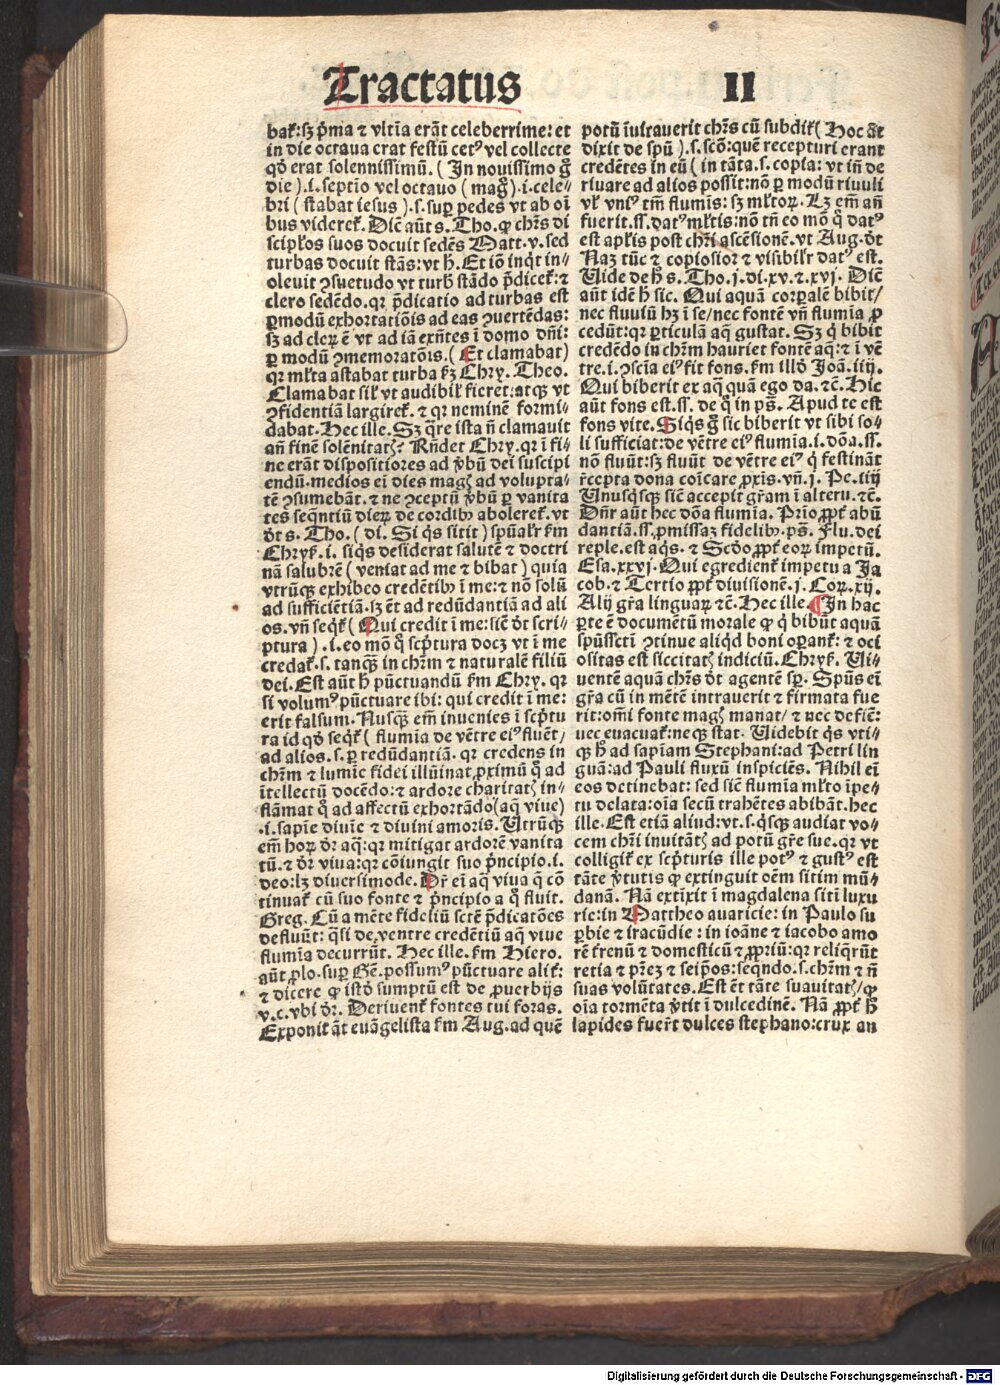 Tractatus II
bat᷑:sꝫ p̃ma ⁊ vltĩa erãt celeberrime: et
in die octaua erat festũ cetꝰ vel collecte
qđ erat solennissimũ. ( In nouissimo g̃
die ) .i. septĩo vel octauo ( mag̃ ) .i. cele⸗
bri ( stabat iesus ) .s. suꝑ pedes vt ab oĩ
bus videret᷑. Dic̃ aũt s. Tho. ꝙ chr̃s di
scip̃los suos docuit sedẽs Matt. v. sed
turbas docuit stãs: vt h̃. Et iõ inq̃t in⸗
oleuit ꝯsuetudo vt turb̃ stãdo p̃dicet᷑: ⁊
clero sedẽdo. qr p̃dicatio ad turbas est
ꝑ modũ exhortatiõis ad eas ꝯuertẽdas:
sꝫ ad cleꝝ ẽ vt ad iã exñtes ĩ domo dñi:
ꝑ modũ ꝯmemoratõis. ( Et clamabat )
qr ml̃ta astabat turba ẜꝫ Chry. Theo.
Clamabat sil̃ vt audibil̃ fieret: atqꝫ vt
ꝯfidentiã largiret᷑. ⁊ qr neminẽ formi⸗
dabat. Hec ille. Sꝫ q̃re ista ñ clamauit
añ finẽ solẽnitatꝭ? Rñdet Chry. qr ĩ fi⸗
ne erãt dispositiores ad v̾bũ dei suscipi
endũ. medios ei dies magꝭ ad volupta⸗
tẽ ꝯsumebãt. ⁊ ne ꝯceptũ v̾bũ ꝑ vanita
tes seq̃ntiũ dieꝝ de cordibꝰ aboleret᷑. vt
ð̃t s. Tho. ( di. Si q̃s sitit ) spũal̃r ẜm
Chryẜ. i. siq̃s desiderat salutẽ ⁊ doctri
nã salubrẽ ( veniat ad me ⁊ bibat ) quia
vtrũqꝫ exhibeo credẽtibꝰ ĩ me: ⁊ nõ solũ
ad sufficiẽtiã. sꝫ ẽt ad redũdantiã ad ali
os. vñ seq̃t᷑ ( Qui credit ĩ me: sic̃ ð̃t scri⸗
ptura ) . i. eo mõ q̃ sc̃ptura docꝫ vt ĩ me
credat᷑. s. tanqꝫ in chr̃m ⁊ naturalẽ filiũ
dei. Est aũt h̃ pũctuandũ ẜm Chry. qr
si volumꝰ pũctuare ibi: qui credit ĩ me:
erit falsum. Nusqꝫ em̃ inuenies ĩ sc̃ptu
ra id qđ seq̃t᷑ ( flumĩa de vẽtre eiꝰ fluẽt/
ad alios .s. ꝑ redũdantiã. qr credens in
chr̃m ⁊ lumĩe fidei illũinat ꝓximũ q̃ ad
ĩtellectũ docẽdo: ⁊ ardore charitatꝭ in⸗
flãmat q̃ ad affectũ exhortãdo ( aq̃ viue )
.i. sapĩe diuĩe ⁊ diuini amoris. Utrũqꝫ
em̃ hoꝝ ð̃r aq̃: qr mitigat ardorẽ vanita
tũ. ⁊ ð̃r viua: qr cõiungit suo p̃ncipio .i.
deo: lꝫ diuersimode. Ðr̃ ei aq̃ viua q̃ cõ
tinuat᷑ cũ suo fonte ⁊ p̃ncipio a q̃ fluit.
Greg. Cũ a mẽte fideliũ sctẽ p̃dicatõẽs
defluũt: q̃si de ventre credẽtiũ aq̃ viue
flumĩa decurrũt. Hec ille. ẜm Hiero.
aũt ꝓlo. suꝑ Gẽ. possumꝰ pũctuare alit᷑:
⁊ dicere ꝙ istđ sumptũ est de ꝓuerbijs
v. c. vbi ð̃r. Deriuent᷑ fontes tui foras.
Exponit ãt euãgelista ẜm Aug. ad quẽ
potũ ĩuitauerit chr̃s cũ subdit᷑ ( Hoc ãt
dixit de spũ ) .s. scõ: quẽ recepturi erant
credẽtes in eũ ( in tãta .s. copia: vt iñ de
riuare ad alios possit: nõ ꝑ modũ riuuli
vl̃ vniꝰ tm̃ flumĩs: sꝫ ml̃toꝝ. Lꝫ em̃ añ
fuerit .ss. datꝰ ml̃tis: nõ tñ eo mõ q̃ datꝰ
est apl̃is post chr̃i ascẽsionẽ. vt Aug. ð̃t
Naꝫ tũc ⁊ copiosior ⁊ visibil̃r datꝰ est.
Uide de h̃ s. Tho. j. di. xv. ⁊. xvj. Dic̃
aũt idẽ h̃ sic. Qui aquã corꝑalẽ bibit/
nec fluuiũ hꝫ ĩ se/ nec fontẽ vñ flumĩa ꝓ
cedũt: qr ꝑticulã aq̃ gustat. Sꝫ q̃ bibit
credẽdo in chr̃m hauriet fontẽ aq̃: ⁊ ĩ vẽ
tre. i. ꝯscĩa eiꝰ fit fons. ẜm illđ Joã. iiij.
Qui biberit ex aq̃ quã ego da. ⁊c. Hic
aũt fons est. ss. de q̃ in ps̃. Apud te est
fons vite. Siq̃s g̃ sic biberit vt sibi so⸗
li sufficiat: de vẽtre eiꝰ flumĩa. i. dõa. ss.
nõ fluũt: sꝫ fluũt de vẽtre eiꝰ q̃ festinãt
r̃cepta dona coĩcare ꝓxis. vñ. j. Pe. iiij
Unusq̃sqꝫ sic̃ accepit gr̃am ĩ alteru. ⁊c.
Dñr aũt hec dõa flumĩa. Prĩo ꝓpt̃ abũ
dantiã. ss. ꝓmissaꝫ fidelibꝰ. ps̃. Flu. dei
reple. est aq̃s. ⁊ Scđo ꝓpt̃ eoꝝ impetũ.
Esa. xxvj. Qui egredient᷑ impetu a Ja
cob. ⁊ Tertio ꝓpt̃ diuisionẽ. j. Coꝝ. xij.
Alij gr̃a linguaꝝ ⁊c. Hec ille. ¶ In hac
ꝑte ẽ documẽtũ morale ꝙ q̃ bibũt aquã
spũssc̃ti ꝯtinue aliq̃d boni operant᷑: ⁊ oci
ositas est siccitatꝭ indiciũ. Chryẜ. Ui⸗
uentẽ aquã chr̃s ð̃t agentẽ sꝑ. Spũs ei
gr̃a cũ in mẽtẽ intrauerit ⁊ firmata fue
rit: om̃i fonte magꝭ manat/ ⁊ nec defic̃:
nec euacuat᷑: neqꝫ stat. Uidebit q̃s vti⸗
qꝫ h̃ ad sapĩam Stephani: ad Petri lin
guã: ad Pauli fluxũ inspiciẽs. Nihil ei
eos detinebat: sed sic̃ flumĩa ml̃to ĩpe⸗
tu delata: oĩa secũ trahẽtes abibãt. hec
ille. Est etiã aliud: vt. s. q̃sqꝫ audiat vo⸗
cem chr̃i inuitãtꝭ ad potũ gr̃e sue. qr vt
colligit᷑ ex sc̃pturis ille potꝰ ⁊ gustꝰ est
tãte v̾tutis ꝙ extinguit oẽm sitim mũ⸗
danã. Nã extĩxit ĩ magdalena sitĩ luxu
rie: in Mattheo auaricie: in Paulo su
ꝑbie ⁊ iracũdie: in ioãne ⁊ iacobo amo
rẽ terrenũ ⁊ domesticũ ⁊ ꝓpriũ: qr reliq̃rũt
retia ⁊ pr̃eꝫ ⁊ seip̃os: seq̃ndo .s. chr̃m ⁊ ñ
suas volũtates. Est ẽt tãte suauitatꝭ/ ꝙ
oĩa tormẽta v̾tit ĩ dulcedinẽ. Nã ꝓpt̃ h̃
lapides fuer̃t dulces stephano: crux an
Digitalisierung gefördert durch die Deutsche Forschungsgemeinschaft - DFG